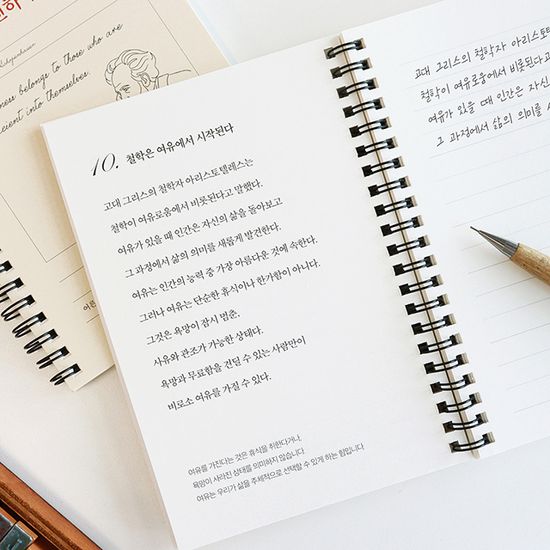 ness belongs to those who are
icient into themselves.
10. 철학은 여유에서 시작된다
고대 그리스의 철학자 아리스토텔레스는
철학이 여유로움에서 비롯된다고 말했다.
여유가 있을 때 인간은 자신의 삶을 돌아보고
그 과정에서 삶의 의미를 새롭게 발견한다.
여유는 인간의 능력 중 가장 아름다운 것에 속한다.
그러나 여유는 단순한 휴식이나 한가함이 아니다.
그것은 욕망이 잠시 멈춘,
사유와 관조가 가능한 상태다.
욕망과 무료함을 견딜 수 있는 사람만이
비로소 여유를 가질 수 있다.
여유를 가진다는 것은 휴식을 취한다거나,
욕망이 사라진 상태를 의미하지 않습니다.
여유는 우리가 삶을 주체적으로 선택할 수 있게 하는 힘입니다.
고대 그리스의 철학자 아리스토텔
철학이 여유로움에서 비롯된다고
여유가 있을 때 인간은 자신
그 과정에서 삶의 의미를 새